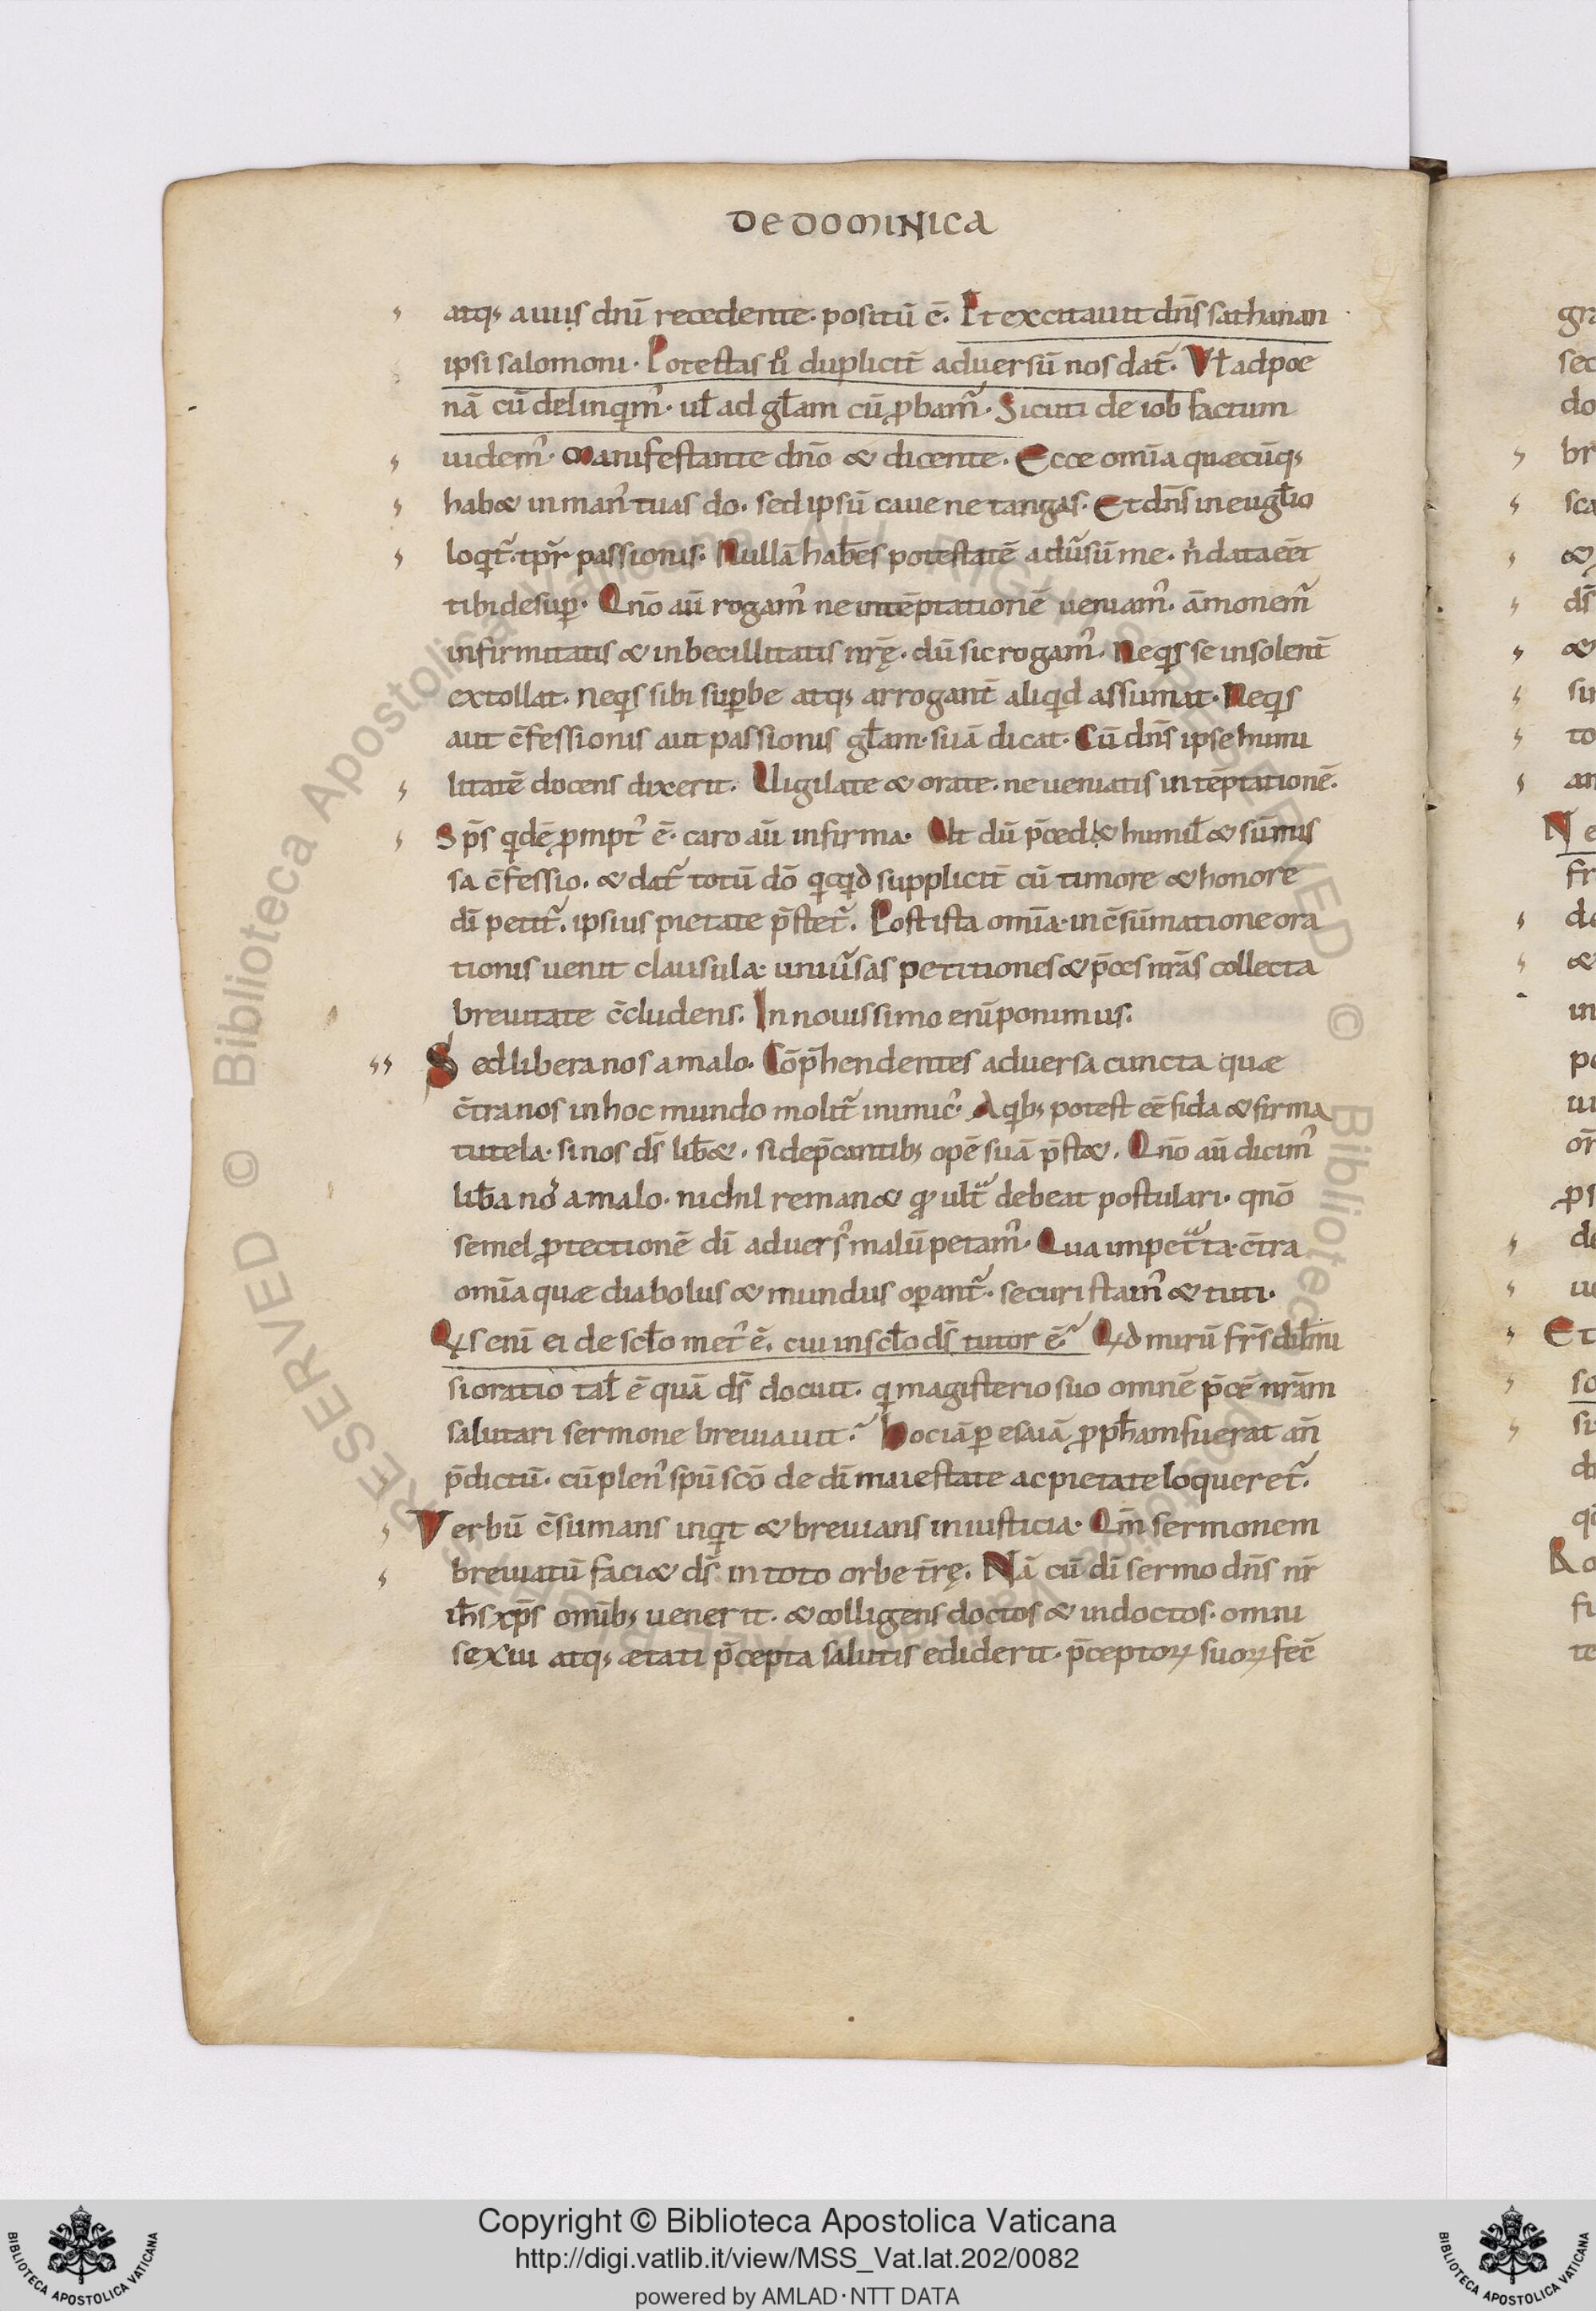 DE DOMINICA
atq; a uiis dnī recedente. positū ē. Et excitauit dn̄s sathanan
ipsi salomoni. Potestas u̇ duplicit̄ aduersū nos dat᷑. Vł ad poe
nā cū delinqim᾽. uł ad gła̅m cū ꝓbam᷑. Sicuti de iob factum
uidem᾽. Manifestante dn̄o & dicente. Ecce omīa quæcūq;
hab& in man᾽ tuas do. sed ipsū caue ne tangas. Et dn̄s in eugłio
loqit᷑. tp̄r passionis. Nullā habēs potestatē adu̾sū me. n̄ data eēt
tibi desuꝑ. Qn̄o aū rogam᾽ ne in tēptationē ueniam᾽. ām̄onem᷑
infirmitatis & inbecillitatis nr̄ę. dū sic rogam᾽. Ne qis se insolent̄
extollat. ne qis sibi suꝑbe atq; arrogant̄ aliqid assumat. Ne qis
aut c̄fessionis aut passionis gła̅m suā dicat. Cū dn̄s ipse humi
litatē docens dixerit. Uigilate & orate. ne ueniatis in tēptationē.
Sp̄s qidē ꝓmpt᾽ ē. caro aū infirma. Ut dū p̄ced& humił & sūmis
sa c̄fessio. & dat᷑ totū dō qicqid supplicit̄ cū timore & honore
dī petit᷑. ipsius pietate p̄stet᷑. Post ista omīa. in c̄sūmatione ora
tionis uenit clausula. uniu̾sas petitiones & p̄ces nr̄as collecta
breuitate c̄cludens. In nouissimo enī ponimus.
Sed libera nos a malo. Cōp̄hendentes aduersa cuncta quæ
c̄tra nos in hoc mundo molit᷑ inimic᾽. A qib; potest eē fida & firma
tutela. si nos ds̄ lib̄&. si dep̄cantib; opē suā p̄st&. Qn̄o aū dicim᾽
lib̄a nos a malo. nichil reman& qd ult᷑ debeat postulari. qn̄o
semel ꝓtectionē dī aduers᾽ malū petam᾽. Qua impet᷑ta c̄tra
omīa quæ diabolus & mundus oꝑant᷑. securi stam᾽ & tuti.
Qis enī ei de scło met᾽ ē. cui in scło ds̄ tutor ē. Qid mirū fr̄s dił̄mi
si oratio tał ē quā ds̄ docuit. qi magisterio suo omnē p̄cē nr̄am
salutari sermone breuiauit. Hoc iā ꝑ esaiā ꝓph̄am fuerat añ
p̄dictū. cū plen᾽ spū scō de dī maiestate ac pietate loqueret᷑.
Verbū c̄sumans inqit & breuians in iusticia. Qm̄ sermonem
breuiatū faci& ds̄ in toto orbe tr̄ę. Nā cū dī sermo dn̄s nr̄
ih̄s xp̄s omīb; uenerit. & colligens doctos & indoctos. omni
sexui atq; ætati p̄cepta salutis ediderit. p̄ceptoꝝ suoꝝ fec̄
Copyright © Biblioteca Apostolica Vaticana
http://digi.vatlib.it/view/MSS_Vat.lat.202/0082
powered by AMLAD·NTT DATA